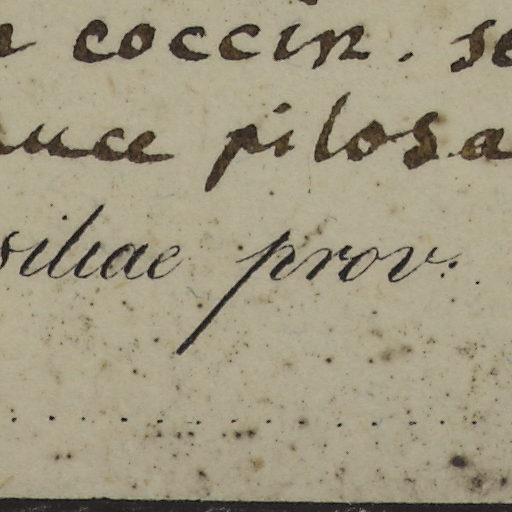 coccin. se
auce pilosa
siliae prov.